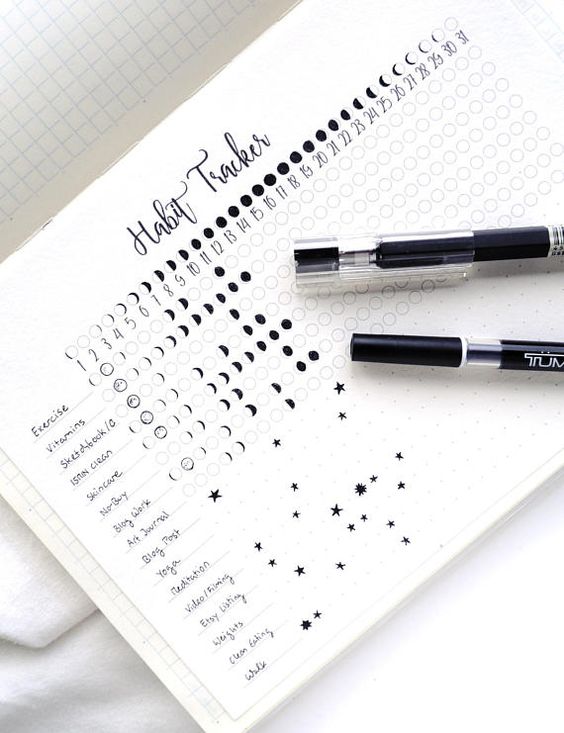 Habit Tracker
1 2 3 4 5 6 7 8 9 10 11 12 13 14 15 16 17 18 19 20 21 22 23 24 25 26 27 28 29 30 31
Exercise
Vitamins
Sketchbook/C
15MIN Clean
Skincare
No-Buy
Blog Work
Art Journal
Blog Post
Yoga
Meditation
Video/Filming
Etsy Listing
Weights
Clean Eating
Walk
TUM